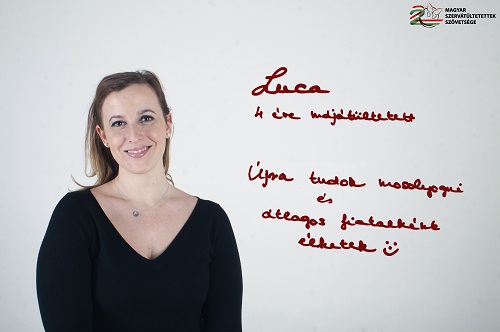 MAGYAR
SZERVÁTÜLTETETTEK
SZÖVETSÉGE
Luca
4 éve májátültetett
Újra tudok mosolyogni
és
átlagos fiatalként
élhetek